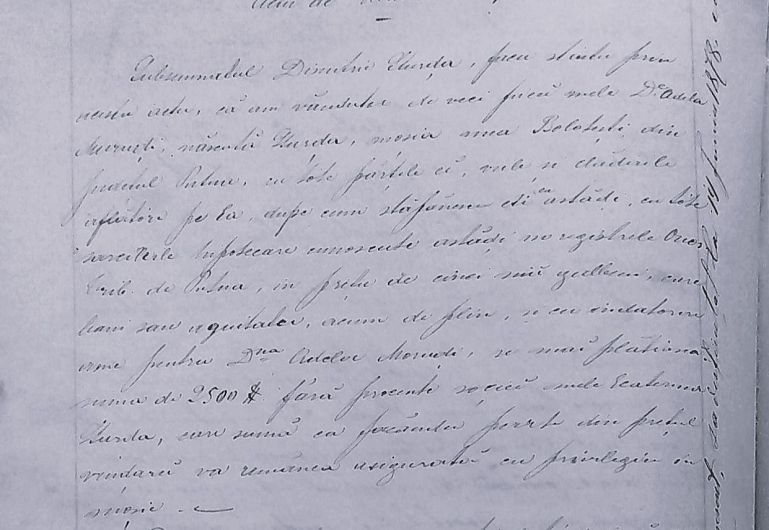 Act de
Subsemnatul Dimitrie Zurda, facu sciutu prin
acestu actu, că am vândutu de veci fiicei mele D-ei Adela
Moruzi, născută Zurda, moșia mea Bolotești din
județul Putna, cu tóte părțile ei, viile și clădirile
aflătóre pe ea, dupe cum stăpânesc și eu astăḑi, cu tóte
sarcinile hipotecare cunoscute astăḑi în registrele Onor.
Trib. de Putna, în prețu de cinci mii galbeni, care
bani sau achitatu, acum de plin, și cu îndatorire
pentru Dna Adela Moruzi, se mai plătească
suma de 2500 # fără procente soției mele Ecaterina
Zurda, care sumă ca făcându parte din prețul
vândării va rămânea asigurată cu privilegiu în
moșie.
14 Iunie 1878.